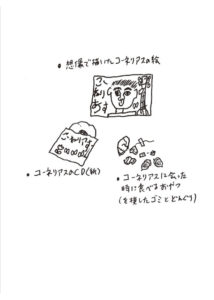 • 想像で描いたコーネリアスの絵
こーねりあす
こーねりあす
• コーネリアスのCD(紙)
• コーネリアスに会った
時に食べるおやつ
(を模したゴミとどんぐり)